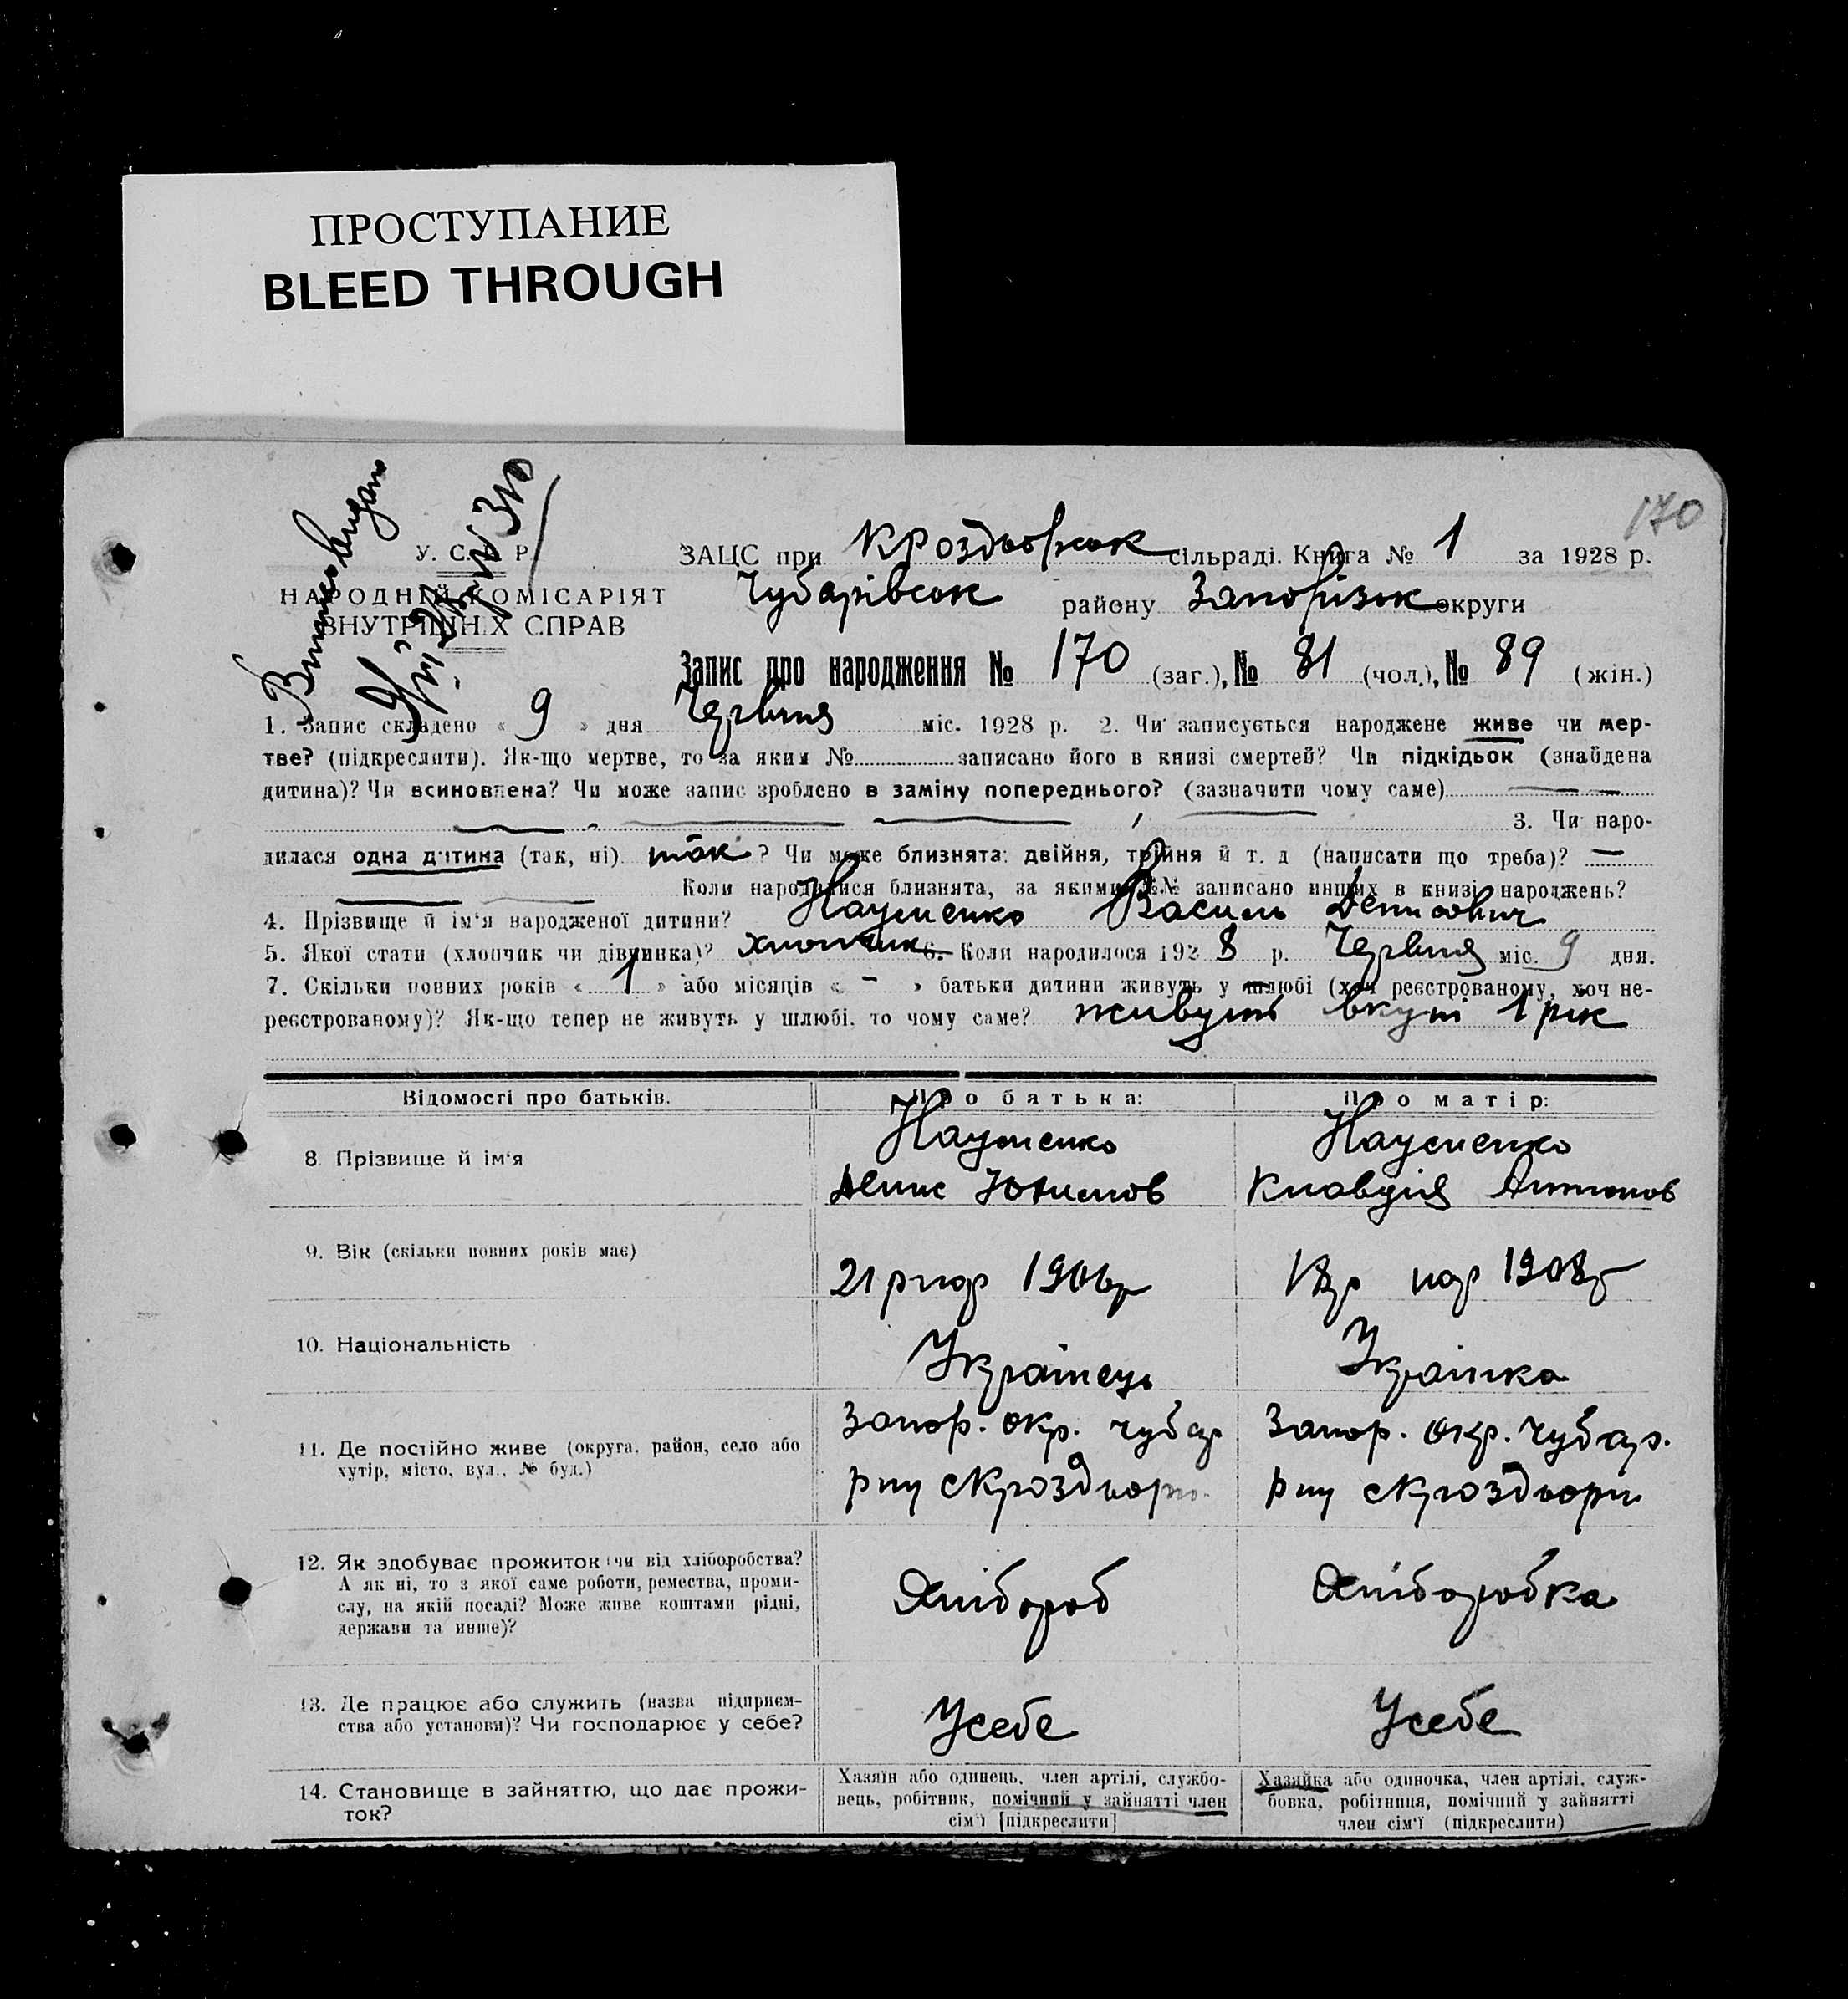 ПРОСТУПАНИЕ
BLEED THROUGH
170
У. С. Р. Р.
НАРОДНІЙ КОМІСАРІЯТ
ВНУТРІШНІХ СПРАВ
ЗАЦС при Кроздворськ сільраді. Книга № 1 за 1928 р.
Чубарівськ району Запорізьк округи
Запис про народження № 170 (заг.), № 81 (чол.), № 89 (жін.)
1. Запис складено « 9 » дня Червня міс. 1928 р. 2. Чи записується народжене живе чи мер-
тве? (підкреслити). Як-що мертве, то за яким № записано його в книзі смертей? Чи підкідьок (знайдена
дитина)? Чи всиновлена? Чи може запис зроблено в заміну попереднього? (зазначити чому саме)
3. Чи наро-
дилася одна дитина (так, ні) так ? Чи може близнята: двійня, трійня й т. д (написати що треба)? —
Коли народилися близнята, за якими №№ записано инших в книзі народжень?
4. Прізвище й ім'я народженої дитини? Науменко Василь Денисович
5. Якої стати (хлопчик чи дівчинка)? хлопчик 6. Коли народилося 192 8 р. Червня міс. 9 дня.
7. Скільки повних років « 1 » або місяців « - » батьки дитини живуть у шлюбі (хоч реєстрованому, хоч не-
реєстрованому)? Як-що тепер не живуть у шлюбі, то чому саме? живуть вкупі 1 рік
Відомості про батьків. Про батька: Про матір:
8. Прізвище й ім'я Науменко Науменко
Денис Юхимов Клавдія Антонов
9. Вік (скільки повних років має) 21 р нар 1906р 18р нар 1908р
10. Національність Українець Українка
11. Де постійно живе (округа, район, село або
хутір, місто, вул., № буд.)
Запор. окр. Чубар Запор. окр. Чубар.
рну
рну
12. Як здобуває прожиток (чи від хліборобства?
А як ні, то з якої саме роботи, ремества, проми-
слу, на якій посаді? Може живе коштами рідні,
держави та инше)?
Хлібороб Хліборобка
13. Де працює або служить (назва підприєм-
ства або установи)? Чи господарює у себе?
Усебе Усебе
14. Становище в зайняттю, що дає прожи-
ток?
Хазяїн або одинець, член артілі, службо-
вець, робітник, помічний у зайнятті член
сім'ї [підкреслити]
Хазяйка або одиночка, член артілі, служ-
бовка, робітниця, помічний у зайнятті
член сім'ї (підкреслити)